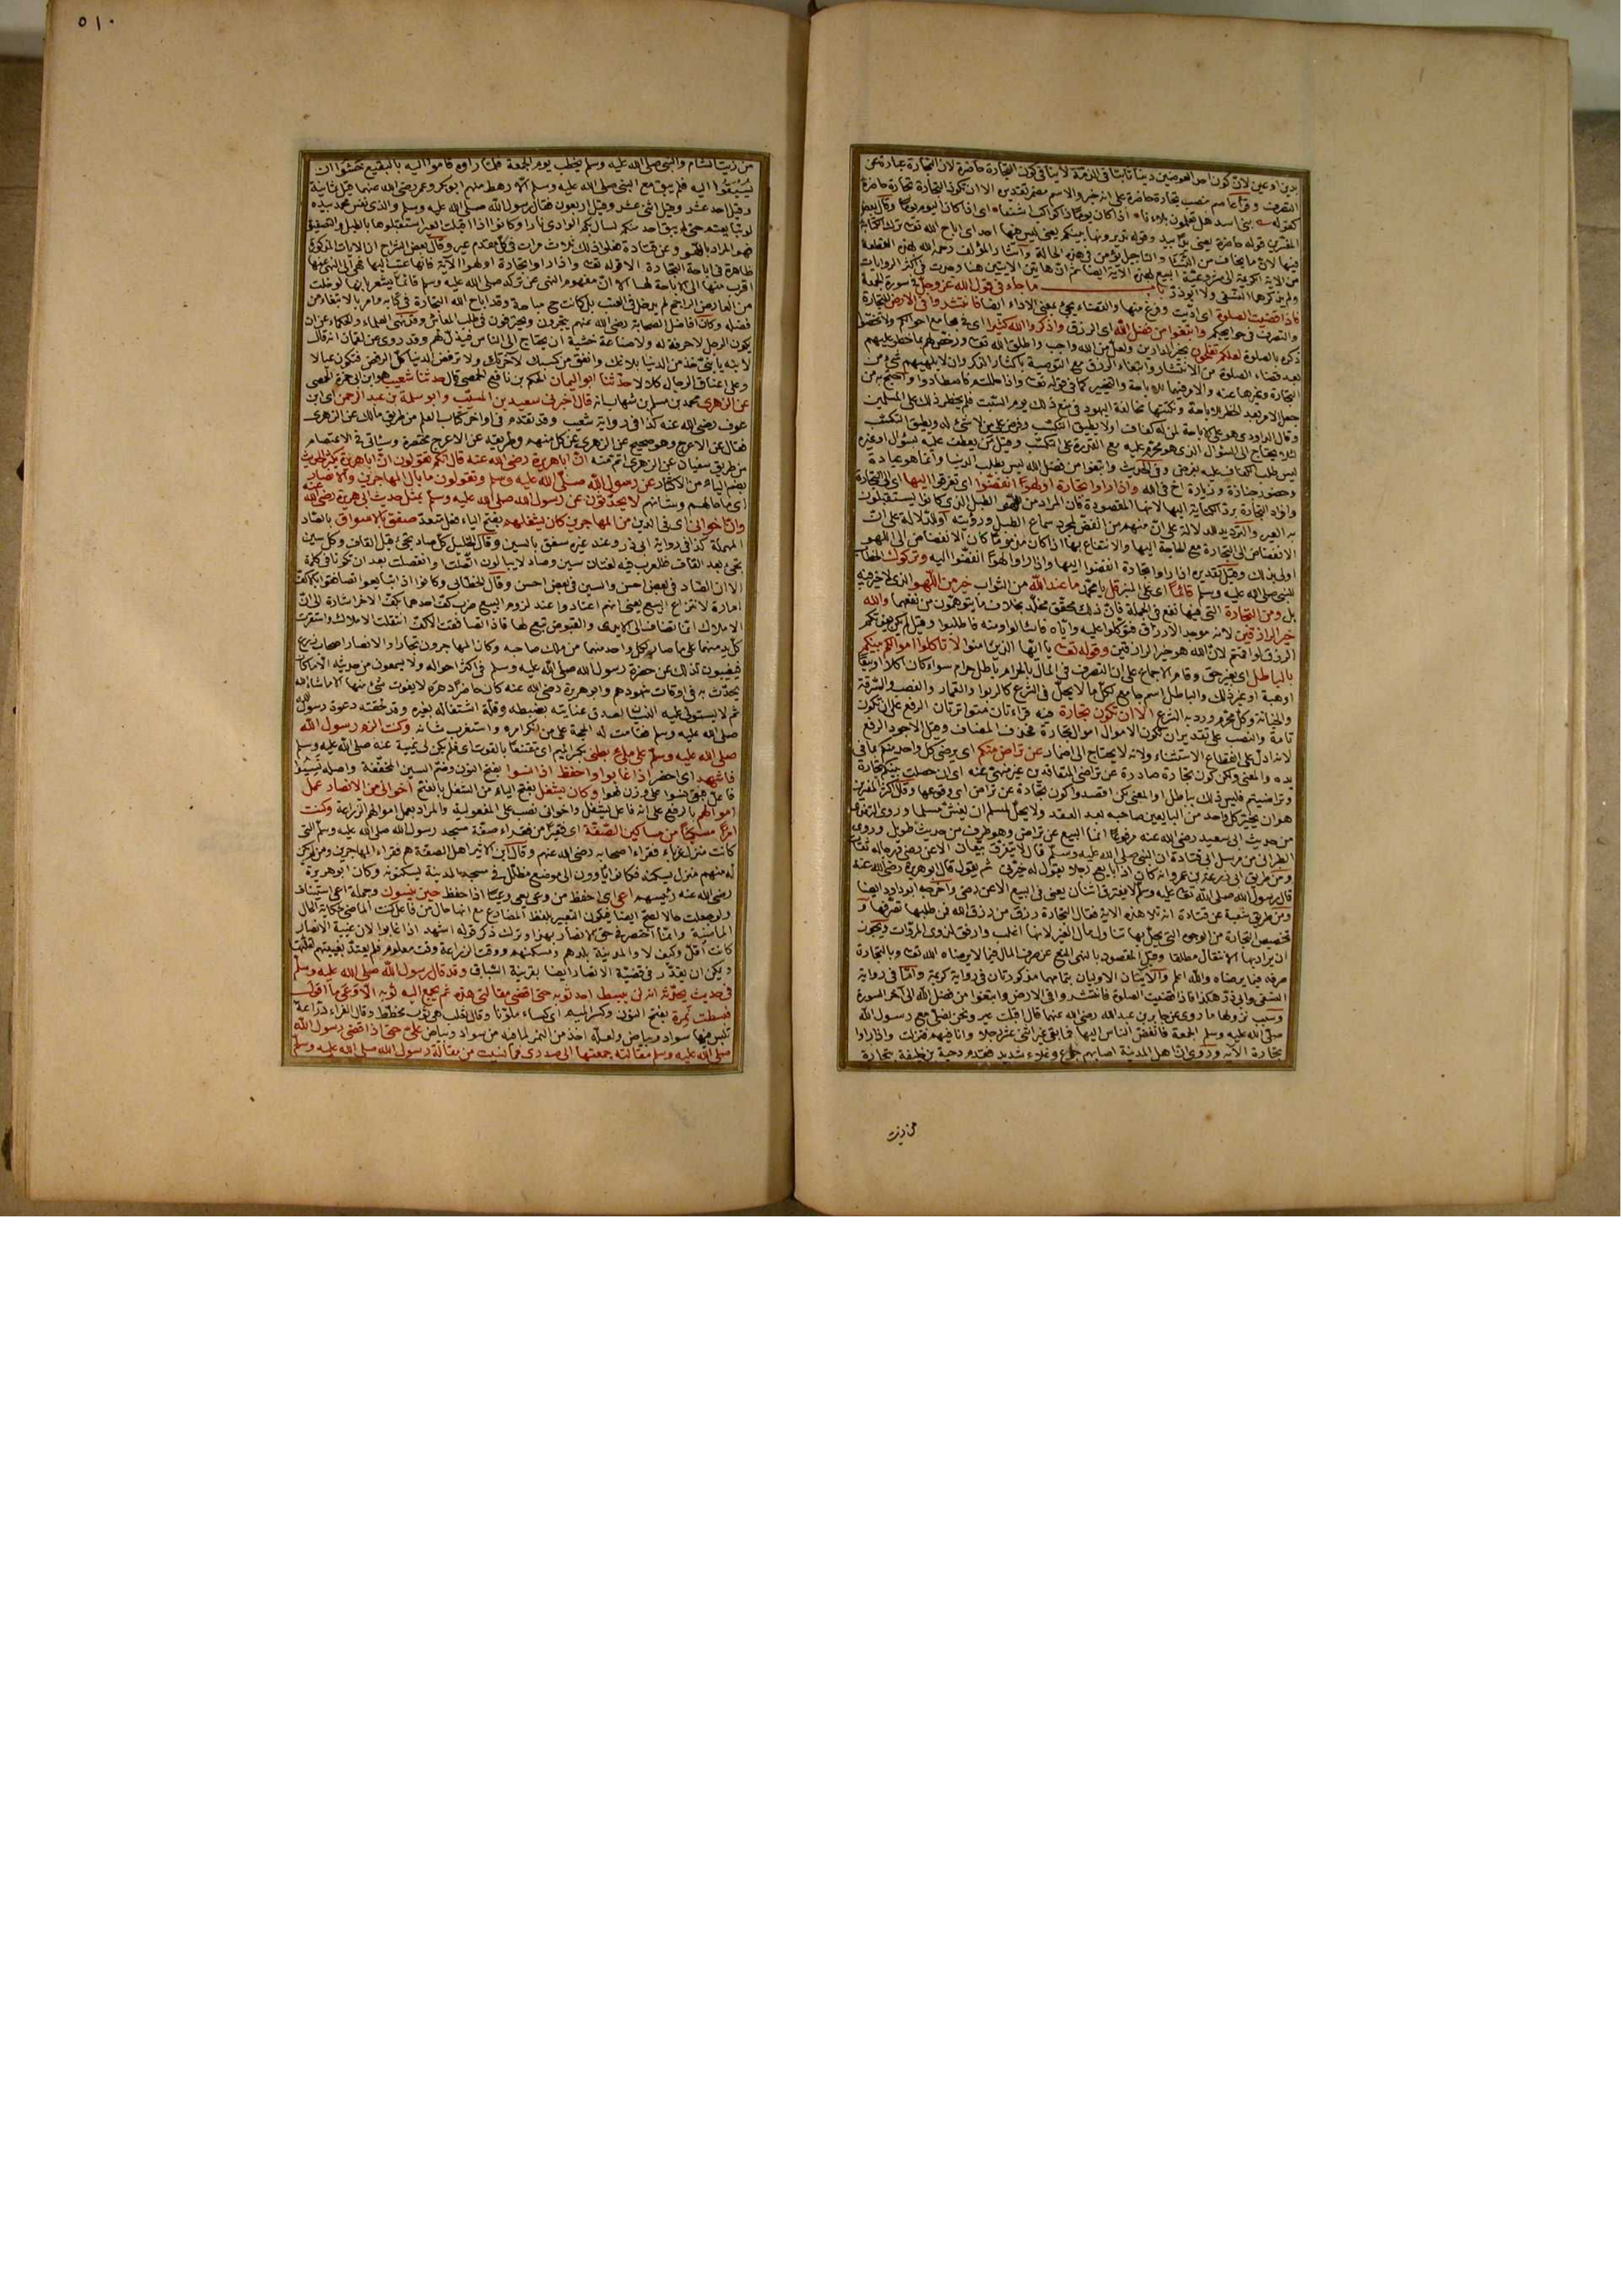 بدين او عين لان كون احد العوضين دينا ثابتا في الذمة لا ينافي كون التجارة حاضرة لان التجارة عبارة عن
التصرف وقرأ عاصم بنصب تجارة حاضرة على انه خبر والاسم مضمر تقديره الا ان تكون التجارة تجارة حاضرة
المفسرين قوله حاضرة يعني يدا بيد وقوله تديرونها بينكم يعني ليس فيها اجل اي اباح الله تعالى ترك الكتابة
من الاية الكريمة الى مشروعية البيع بهذه الآية ايضا ثم ان هاتين الآيتين هنا وجدت في اكثر الروايات
ولم يذكرهما النسفي ولا ابو ذر باب ما جاء في قول الله عز وجل في سورة الجمعة
فاذا قضيت الصلوة اي اديت وفرغ منها والقضاء يجئ بمعنى الاداء ايضا فانتشروا في الارض للتجارة
والتصرف في حوايجكم وابتغوا من فضل الله اي الرزق واذكروا الله كثيرا اي في مجامع احوالكم ولا تخصوا
ذكره بالصلوة لعلكم تفلحون بخير الدارين ولعل من الله واجب واطلق الله تعالى ورخص لهم ما حظر عليهم
بعد قضاء الصلوة من الانتشار وابتغاء الرزق مع التوصية باكثار الذكر وان لا يلهيهم شئ من
التجارة وغيرها عنه والامر فيهما للاباحة والتخيير كما في قوله تعالى واذا حللتم فاصطادوا واحتج به من
جعل الامر بعد الحظر للاباحة ونكتتها مخالفة اليهود في منع ذلك يوم السبت فلم يحظر ذلك على المسلمين
وقال الداودي هو على الاباحة لمن له كفاف او لا يطيق التكسب وفرض على من لا شئ له ويطيق التكسب
لئلا يحتاج الى السؤال الذي هو محرم عليه مع القدرة على التكسب وقيل من يعطف عليه بسؤال او غيره
ليس طلب الكفاف عليه بفرض وفي الحديث وابتغوا من فضل الله ليس بطلب الدنيا وانما هو عيادة
وحضور جنازة وزيارة اخ في الله واذا رأوا تجارة او لهوا انفضوا اي تفرقوا اليها اي الى التجارة
وافراد التجارة برد الكناية اليها لانها المقصودة فان المراد من اللهو الطبل الذي كانوا يستقبلون
به العير والترديد للدلالة على ان منهم من انفض لمجرد سماع الطبل ورؤيته او للدلالة على ان
الانفضاض الى التجارة مع الحاجة اليها والانتفاع بها اذا كان مذموما كان الانفضاض الى اللهو
اولى بذلك وقيل تقديره اذا رأوا تجارة انفضوا اليها واذا رأوا لهوا انفضوا اليه وتركوك الخطاب
للنبي صلى الله عليه وسلم قائما اي على المنبر قل يا محمد ما عند الله من الثواب خير من اللهو الذي لا خير فيه
بل ومن التجارة التي فيها نفع في الجملة فان ذلك محقق مخلد بخلاف ما يتوهمون من نفعهما والله
خير الرازقين لانه موجد الارزاق فتوكلوا عليه واياه فاسألوا ومنه فاطلبوا وقيل لم يكن يفوتكم
الرزق لو اقمتم لان الله هو خير الرازقين وقوله تعالى يا ايها الذين امنوا لا تاكلوا اموالكم بينكم
بالباطل اي بغير حق وقام الاجماع على ان التصرف في المال بالحرام باطل حرام سواء كان اكلا او بيعا
او هبة او غير ذلك والباطل اسم جامع لكل ما لا يحل في الشرع كالربوا والقمار والغصب والسرقة
والخيانة وكل محرم ورد به الشرع الا ان تكون تجارة فيه قراءتان متواترتان الرفع على ان تكون
تامة والنصب على تقدير ان تكون الاموال اموال تجارة فحذف المضاف وقيل الاجود الرفع
لانه ادل على انقطاع الاستثناء ولانه لا يحتاج الى اضمار عن تراض منكم اي يرضى كل واحد منكم بما في
يده والمعنى ولكن كون تجارة صادرة عن تراضي المتعاقدين غير منهي عنه اي ان حصلت بينكم تجارة
وتراضيتم فليس ذلك بباطل او المعنى لكن اقصدوا كون تجارة عن تراض اي وقوعها وقال اكثر المفسرين
هو ان يخير كل واحد من البايعين صاحبه بعد العقد ولا يحل لمسلم ان يغش مسلما وروى الترمذي
من حديث ابي سعيد رضي الله عنه مرفوعا انما البيع عن تراض وهو طرف من حديث طويل وروى
الطبراني من مرسل ابي قتادة ان النبي صلى الله عليه وسلم قال لا يتفرق بيعان الا عن رضى ورجاله ثقات
ومن طريق ابي زرعة بن عمرو انه كان اذا بايع رجلا يقول له خيرني ثم يقول قال ابو هريرة رضي الله عنه
قال رسول الله صلى الله تعالى عليه وسلم لا يفترق اثنان يعني في البيع الا عن رضى واخرجه ابو داود ايضا
ومن طريق شعبة عن قتادة انه تلا هذه الاية فقال التجارة رزق من رزق الله في طلبها بصدقها و
تخصيص التجارة من الوجوه التي يحل بها تناول مال الغير لانها اغلب وارفق لذوي المروءات ويجوز
ان يراد بها الانتقال مطلقا وقيل المقصود بالنهي المنع عن صرف المال فيما لا يرضاه الله تعالى وبالتجارة
صرفه فيما يرضاه والله اعلم والآيتان الاوليان بتمامهما مذكورتان في رواية كريمة وامّا في رواية
النسفي وابي ذر هكذا فاذا قضيت الصلوة فانتشروا في الارض وابتغوا من فضل الله الى آخر السورة
وسبب نزولها ما روى عن جابر بن عبد الله رضي الله عنهما قال اقبلت عير ونحن نصلي مع رسول الله
صلى الله عليه وسلم الجمعة فانفض الناس اليها فما بقي غير اثنى عشر رجلا وانا فيهم فنزلت واذا رأوا
تجارة الآية وروى ان اهل المدينة اصابهم جوع وغلاء شديد فقدم دحية بن خليفة بتجارة
من زيت
٥١٠
من زيت الشام والنبي صلى الله عليه وسلم يخطب يوم الجمعة فلما رأوه قاموا اليه بالبقيع خشوا ان
يُسْبَقُوا اليه فلم يبق مع النبي صلى الله عليه وسلم الا رهط منهم ابو بكر وعمر رضي الله عنهما قيل ثمانية
وقيل احد عشر وقيل اثنى عشر وقيل اربعون فقال رسول الله صلى الله عليه وسلم والذي نفس محمد بيده
لو تتابعتم حتى لم يبق احد منكم لسال بكم الوادي نارا وكانوا اذا اقبلت العير استقبلوها بالطبل والتصفيق
فهو المراد باللهو وعن قتادة فعلوا ذلك ثلاث مرات في كل مقدم عير وقال بعض الشراح ان الآيات المذكورة
ظاهرة في اباحة التجارة الا قوله تعالى واذا رأوا تجارة او لهوا الآية فانها عتب عليها فهي الى النهي عنها
اقرب منها الى الاباحة لها الا ان مفهوم النهي عن تركه صلى الله عليه وسلم قائما يشعر بانها لو خلت
من العارض الراجح لم يدخل في العتب بل كانت ح مباحة وقد اباح الله التجارة في كتابه وامر بالابتغاء من
فضله وكان افاضل الصحابة رضي الله عنهم يتجرون ويحترفون في طلب المعاش وقد نهى العلماء والحكماء عن ان
يكون الرجل لا حرفة له ولا صناعة خشية ان يحتاج الى الناس فيذل لهم وقد روى عن لقمان انه قال
لابنه يا بني خذ من الدنيا بلاغك وانفق من كسبك لآخرتك ولا ترفض الدنيا كل الرفض فتكون عيالا
وعلى اعناق الرجال كلالا حدثنا ابو اليمان الحكم بن نافع الحمصي قال حدثنا شعيب هو ابن ابي حمزة الحمصي
عن الزهري محمد بن مسلم بن شهاب انه قال اخبرني سعيد بن المسيّب وابو سلمة بن عبد الرحمن اي ابن
عوف رضي الله عنه كذا في رواية شعيب وقد تقدم في اواخر كتاب العلم من طريق مالك عن الزهري
فقال عن الاعرج وهو صحيح عن الزهري عن كل منهم وطريقه عن الاعرج مختصرة وسيأتي في الاعتصام
من طريق سفيان عن الزهري اتم منه انّ ابا هريرة رضي الله عنه قال انكم تقولون انّ ابا هريرة يكثر الحديث
بضم الياء من الاكثار عن رسول الله صلى الله عليه وسلم وتقولون ما بال المهاجرين والانصار
اي ما حالهم وشانهم لا يحدثون عن رسول الله صلى الله عليه وسلم بمثل حديث ابي هريرة رضي الله عنه
وانّ اخواني اي في الدين من المهاجرين كان يشغلهم بفتح الياء فعل متعد صفق بالاسواق بالصاد
المهملة كذا في رواية ابي ذر وعند غيره سفق بالسين وقال الخليل كل صاد تجئ قبل القاف وكل سين
تجئ بعد القاف فللعرب فيه لغتان سين وصاد لا يبالون اتصلت او انفصلت بعد ان تكونا في كلمة
الا ان الصاد في بعض احسن والسين في بعض احسن وقال الخطابي وكانوا اذا تبايعوا تصافقوا بالاكف
امارة لانتزاع البيع يعني انهم اعتادوا عند لزوم البيع ضرب كف احدهما بكف الاخر اشارة الى ان
الاملاك انما تضاف الى الايدي والقبوض تبع لها فاذا تصافقت الاكف انتقلت الاملاك واستقرت
كل يد منهما على ما صار لكل واحد منهما من ملك صاحبه وكان المهاجرون تجارا والانصار اصحاب زرع
فيغيبون لذلك عن حضرة رسول الله صلى الله عليه وسلم في اكثر احواله ولا يسمعون من حديثه الا ما كان
يحدث به في اوقات شهودهم وابو هريرة رضي الله عنه كان حاضرا دهره لا يفوته شئ منها الا ما شاء الله
ثم لا يستولي عليه النسيان لصدق عنايته بضبطه وقلة اشتغاله بغيره وقد لحقته دعوة رسول الله
صلى الله عليه وسلم فقامت له الحجة على من انكر امره واستغرب شانه وكنت الزم رسول الله
صلى الله عليه وسلم على ملء بطني بكسر الميم اي مقتنعا بالقوت اي فلم يكن لي غيبة عنه صلى الله عليه وسلم
فاشهد اي احضر اذا غابوا واحفظ اذا نسوا بفتح النون وضم السين المخففة واصله نسيوا
فاعل فبقي نسوا على وزن فعوا وكان يشغل بفتح الياء من الشغل بالفتح اخواني من الانصار عمل
اموالهم بالرفع على انه فاعل يشغل واخواني نصب على المفعولية والمراد بعمل اموالهم الزراعة وكنت
امرءا مسكينا من مساكين الصُّفّة اي فقيرا من فقراء صفة مسجد رسول الله صلى الله عليه وسلم التي
كانت منزل غرباء فقراء اصحابه رضي الله عنهم وقال ابن الاثير اهل الصفة هم فقراء المهاجرين ومن لم يكن
له منهم منزل يسكنه فكانوا يأوون الى موضع مظلل في مسجد المدينة يسكنونه وكان ابو هريرة
رضي الله عنه رئيسهم اعي اي احفظ من وعى يعي وعيا اذا حفظ حين ينسون وجملة اعي استيناف
ولو جعلت حالا لصح ايضا فيكون التعبير بلفظ المضارع مع انها حال من فاعل كنت الماضي لحكاية الحال
الماضية وانما اختصر في حق الانصار بهذا وترك ذكر قوله اشهد اذا غابوا لان غيبة الانصار
كانت اقلّ وكيف لا والمدينة بلدهم ومسكنهم ووقت الزراعة وقت معلوم فلم يعتد بغيبتهم لقلتها
ويمكن ان يقدّر في قضية الانصار ايضا بقرينة السباق وقد قال رسول الله صلى الله عليه وسلم
في حديث يحدّثه انه لن يبسط احد ثوبه حتى اقضي مقالتي هذه ثم يجمع اليه ثوبه الا وعى ما اقول
فبسطت نَمِرة بفتح النون وكسر الميم اي كساء ملونا وقال ثعلب هي ثوب مخطط وقال القزاز دراعة
تلبس فيها سواد وبياض ولعله اخذ من النمر لما فيه من سواد وبياض عليّ حتى اذا قضى رسول الله
صلى الله عليه وسلم مقالته جمعتها الى صدري فما نسيت من مقالة رسول الله صلى الله عليه وسلم